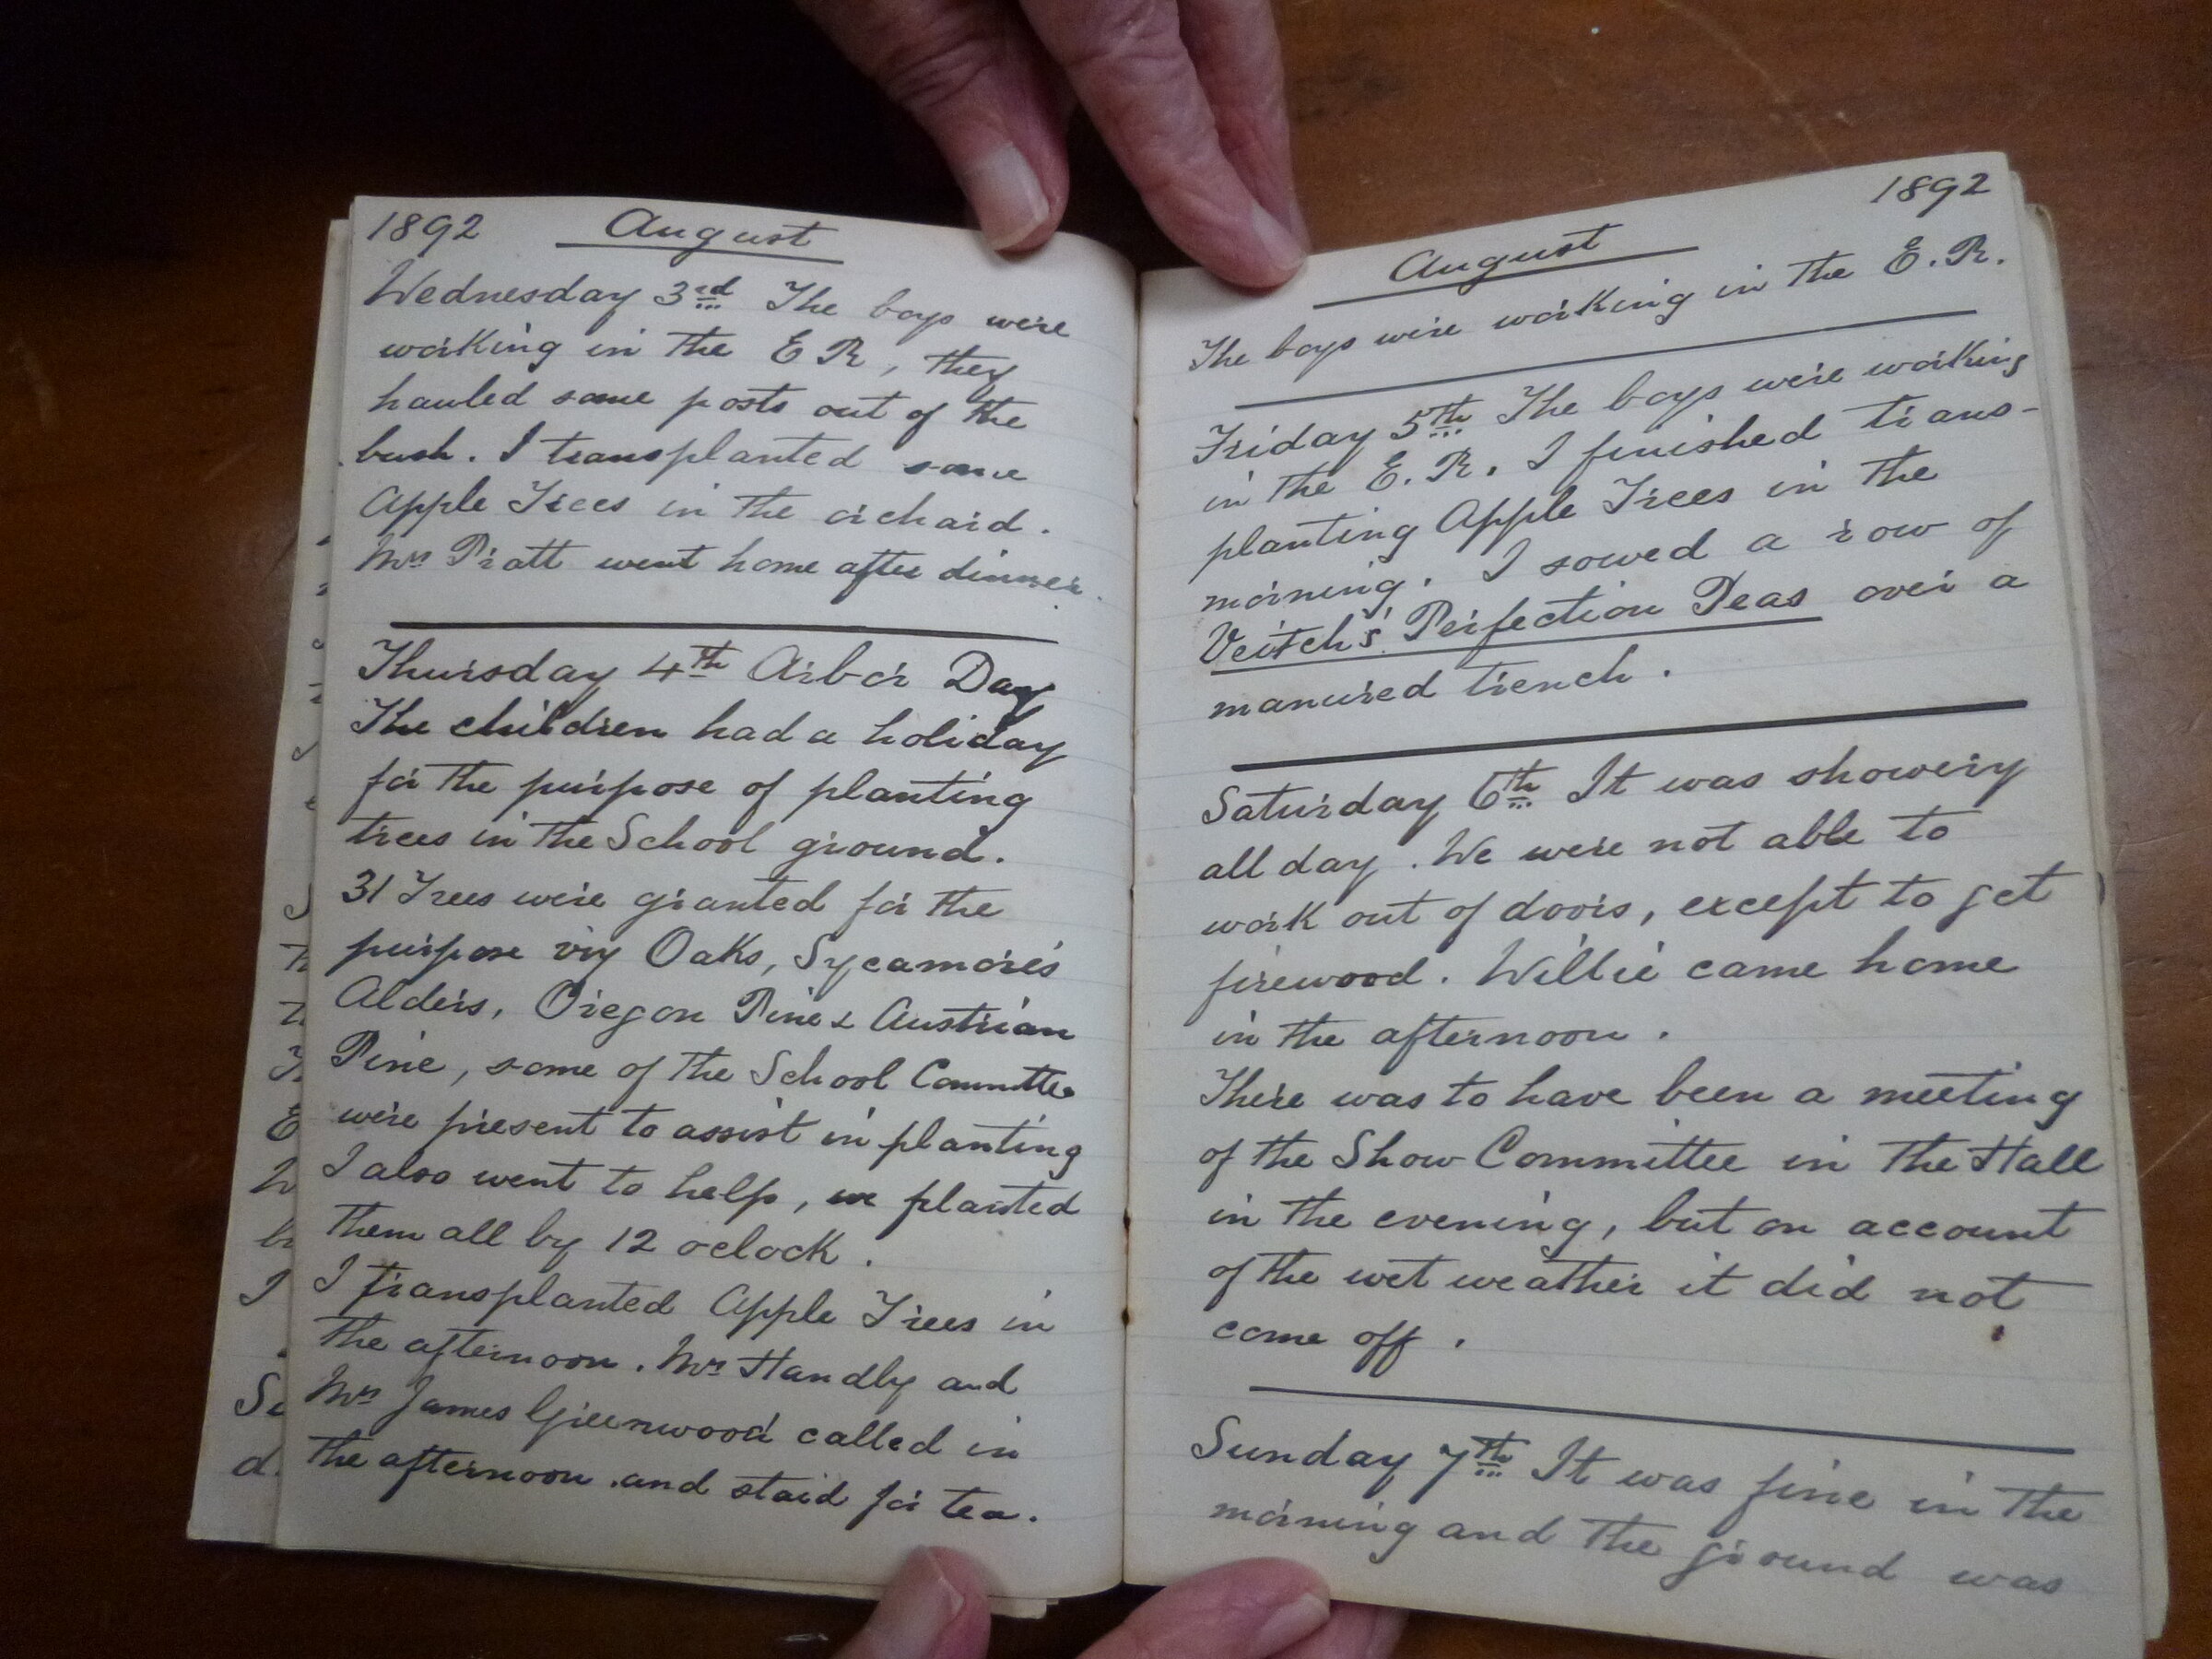 1892 August
Wednesday 3rd The boys were
working in the E R, they
hauled some posts out of the
bush. I transplanted some
Apple Trees in the orchard.
Mrs Pratt went home after dinner.
Thursday 4th Arbor Day
The children had a holiday
for the purpose of planting
trees in the School ground.
31 Trees were granted for the
purpose viz Oaks, Sycamores
Alders, Oregon Pine & Austrian
Pine, some of the School Committee
were present to assist in planting
I also went to help, we planted
them all by 12 oclock.
I transplanted Apple Trees in
the afternoon. Mrs Handly and
Mrs James Greenwood called in
the afternoon and staid for tea.
1892
August
The boys were working in the E.R.
Friday 5th The boys were working
in the E.R. I finished trans-
planting Apple Trees in the
morning. I sowed a row of
Veitch's Perfection Peas over a
manured trench.
Saturday 6th It was showery
all day. We were not able to
work out of doors, except to get
firewood. Willie came home
in the afternoon.
There was to have been a meeting
of the Show Committee in the Hall
in the evening, but on account
of the wet weather it did not
come off.
Sunday 7th It was fine in the
morning and the ground was